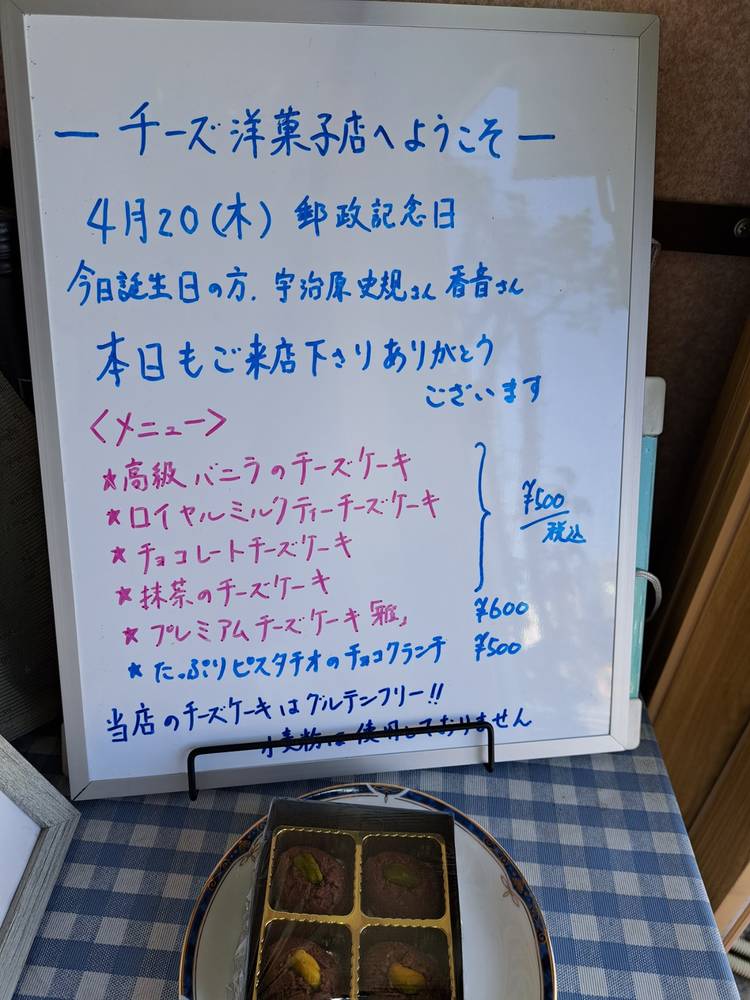 ー チーズ洋菓子店へようこそ ー
4月20(木) 郵政記念日
今日誕生日の方. 宇治原史規さん 香音さん
本日もご来店下さりありがとう
ございます
<メニュー>
★高級バニラのチーズケーキ
★ロイヤルミルクティーチーズケーキ
★チョコレートチーズケーキ
★抹茶のチーズケーキ
¥500
税込
★プレミアムチーズケーキ「雅」 ¥600
★たっぷりピスタチオのチョコクランチ ¥500
当店のチーズケーキはグルテンフリー!!
小麦粉は使用しておりません